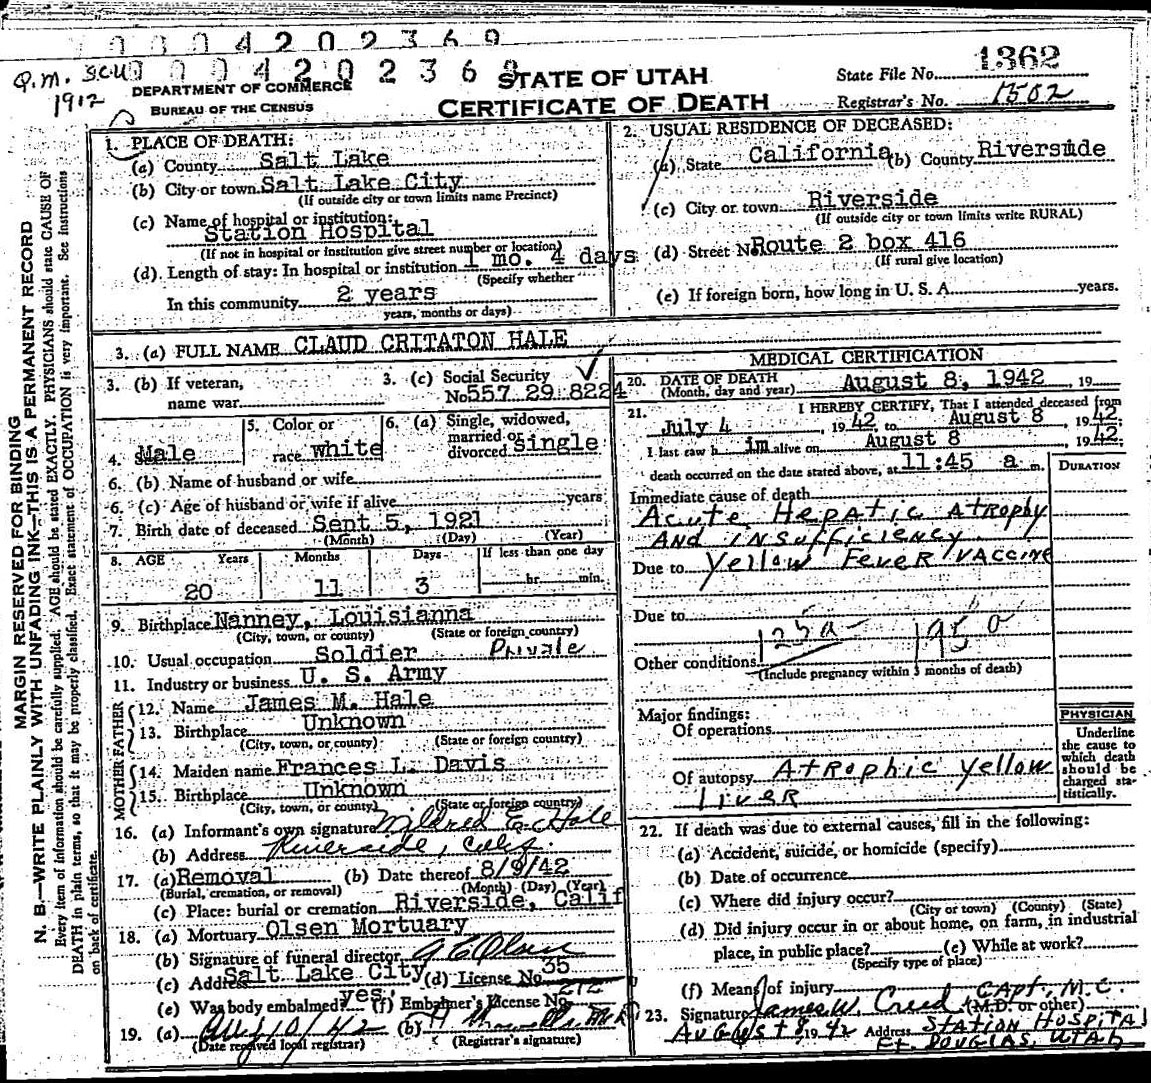 0004202369
000420236
Q.M. S.C.U
1912
DEPARTMENT OF COMMERCE
BUREAU OF THE CENSUS
STATE OF UTAH
CERTIFICATE OF DEATH
State File No. 1362
Registrar's No. 1502
MARGIN RESERVED FOR BINDING
N. B.—WRITE PLAINLY WITH UNFADING INK—THIS IS A PERMANENT RECORD
Every item of information should be carefully supplied. AGE should be stated EXACTLY. PHYSICIANS should state CAUSE OF
DEATH in plain terms, so that it may be properly classified. Exact statement of OCCUPATION is very important. See instructions
on back of certificate.
1. PLACE OF DEATH:
(a) County Salt Lake
(b) City or town Salt Lake City
(If outside city or town limits name Precinct)
(c) Name of hospital or institution:
Station Hospital
(If not in hospital or institution give street number or location)
(d) Length of stay: In hospital or institution 1 mo. 4 days
(Specify whether
In this community 2 years
years, months or days)
2. USUAL RESIDENCE OF DECEASED:
(a) State California (b) County Riverside
(c) City or town Riverside
(If outside city or town limits write RURAL)
(d) Street No. Route 2 box 416
(If rural give location)
(e) If foreign born, how long in U. S. A. years.
3. (a) FULL NAME CLAUD CRITATON HALE
3. (b) If veteran,
name war
3. (c) Social Security
No. 557 29 8224
4. Male
5. Color or
race White
6. (a) Single, widowed,
married or
divorced Single
6. (b) Name of husband or wife
6. (c) Age of husband or wife if alive years
7. Birth date of deceased Sept 5, 1921
(Month) (Day) (Year)
8. AGE Years Months Days If less than one day
20 11 3 hr. min.
9. Birthplace Nanney, Louisianna
(City, town, or county) (State or foreign country)
10. Usual occupation Soldier Private
11. Industry or business U. S. Army
FATHER
12. Name James M. Hale
13. Birthplace Unknown
(City, town, or county) (State or foreign country)
MOTHER
14. Maiden name Frances L. Davis
15. Birthplace Unknown
(City, town, or county) (State or foreign country)
16. (a) Informant's own signature Mildred E. Hale
(b) Address Riverside, Calif.
17. (a) Removal (b) Date thereof 8/9/42
(Burial, cremation, or removal) (Month) (Day) (Year)
(c) Place: burial or cremation Riverside, Calif
18. (a) Mortuary Olsen Mortuary
(b) Signature of funeral director
(c) Address Salt Lake City (d) License No. 35
(e) Was body embalmed? yes (f) Embalmer's License No. 212
19. (a) Aug 10/42 (b)
(Date received local registrar) (Registrar's signature)
MEDICAL CERTIFICATION
20. DATE OF DEATH
(Month, day and year) August 8, 1942, 19
21. I HEREBY CERTIFY, That I attended deceased from
July 4, 1942, to August 8, 1942.
I last saw h im alive on August 8, 1942.
death occurred on the date stated above, at 11:45 a m.
DURATION
Immediate cause of death
Acute Hepatic Atrophy
AND INSUFFICIENCY
Due to Yellow Fever Vaccine
Due to
125a 195a
Other conditions
(Include pregnancy within 3 months of death)
Major findings:
Of operations
Of autopsy Atrophic Yellow
Liver
PHYSICIAN
Underline
the cause to
which death
should be
charged sta-
tistically.
22. If death was due to external causes, fill in the following:
(a) Accident, suicide, or homicide (specify)
(b) Date of occurrence
(c) Where did injury occur?
(City or town) (County) (State)
(d) Did injury occur in or about home, on farm, in industrial
place, in public place? (e) While at work?
(Specify type of place)
(f) Means of injury
Capt. M.C.
23. Signature James W. Creed (M.D. or other)
August 8, 1942 Address Station Hospital
Ft. Douglas, Utah